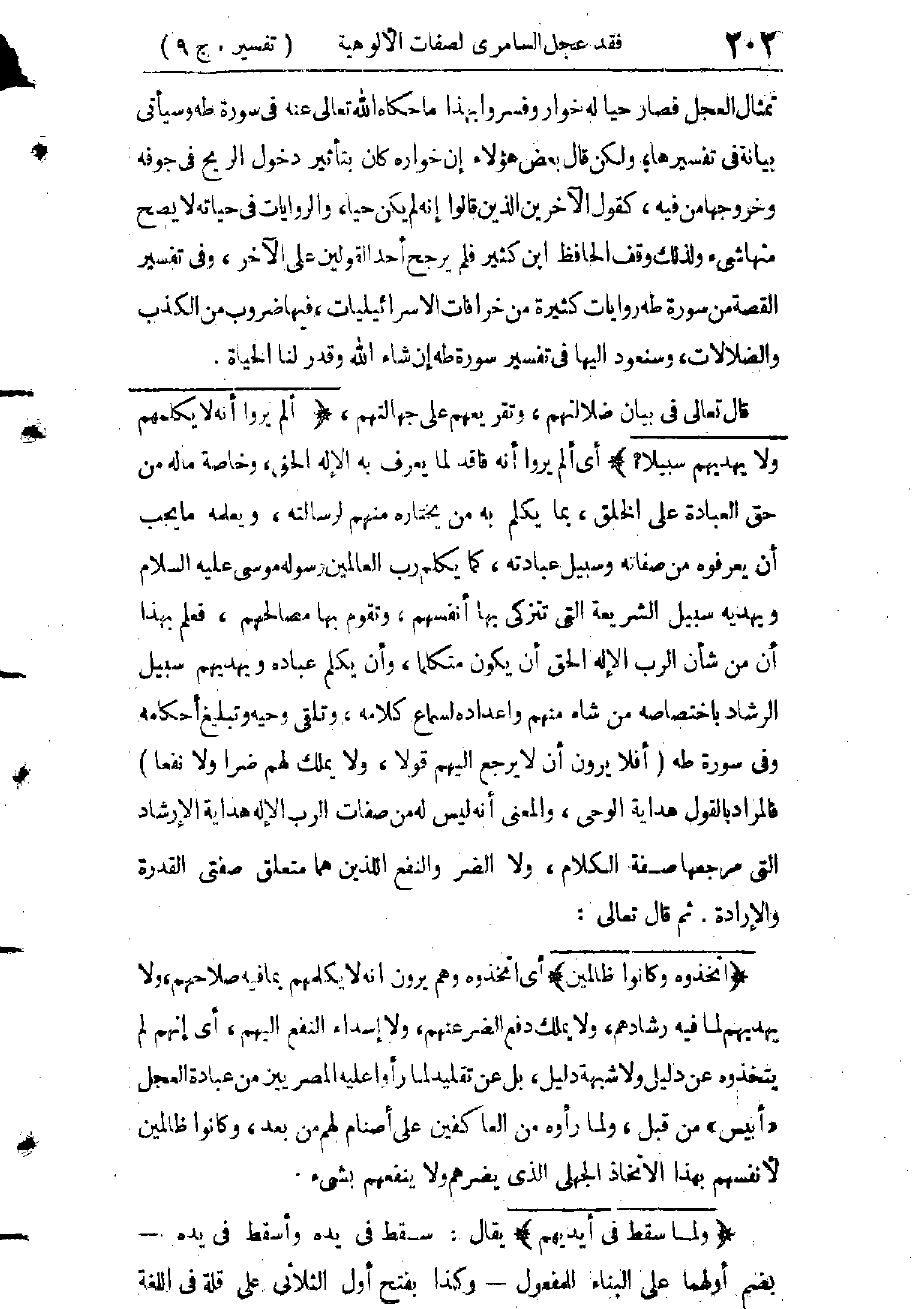 ٢٠٢ فقد عجل السامرى لصفات الألوهية ( تفسير . ج ٩ )
تمثال العجل فصار حيا له خوار وفسروا بهذا ما حكاه الله تعالى عنه فى سورة طه وسيأتى
بيانه فى تفسيرها، ولكن قال بعض هؤلاء إن خواره كان بتأثير دخول الريح فى جوفه
وخروجها من فيه ، كقول الآخرين الذين قالوا إنه لم يكن حيا، والروايات فى حياته لا يصح
منها شىء ولذلك وقف الحافظ ابن كثير فلم يرجح أحد القولين على الآخر ، وفى تفسير
القصة من سورة طه روايات كثيرة من خرافات الاسرائيليات ، فيها ضروب من الكذب
والضلالات، وسنعود اليها فى تفسير سورة طه إن شاء الله وقدر لنا الحياة .
قال تعالى فى بيان ضلالتهم ، وتقريعهم على جهالتهم ، ﴿ ألم يروا أنه لا يكلمهم
ولا يهديهم سبيلا؟ ﴾ أى ألم يروا أنه فاقد لما يعرف به الإله الحق، وخاصة ماله من
حق العبادة على الخلق ، بما يكلم به من يختاره منهم لرسالته ، ويعلمه مايجب
أن يعرفوه من صفاته وسبيل عبادته ، كما يكلم رب العالمين رسوله موسى عليه السلام
ويهديه سبيل الشريعة التى تتزكى بها أنفسهم ، وتقوم بها مصالحهم ، فعلم بهذا
أن من شأن الرب الإله الحق أن يكون متكلما ، وأن يكلم عباده ويهديهم سبيل
الرشاد باختصاصه من شاء منهم واعداده لسماع كلامه ، وتلقى وحيه وتبليغ أحكامه
وفى سورة طه ( أفلا يرون أن لا يرجع اليهم قولا ، ولا يملك لهم ضرا ولا نفعا )
فالمراد بالقول هداية الوحى ، والمعنى أنه ليس له من صفات الرب الإله هداية الإرشاد
التى مرجعها صفة الكلام ، ولا الضر والنفع اللذين هما متعلق صفتى القدرة
والإرادة . ثم قال تعالى :
﴿اتخذوه وكانوا ظالمين﴾ أى اتخذوه وهم يرون انه لا يكلمهم بما فيه صلاحهم، ولا
يهديهم لما فيه رشادهم، ولا يملك دفع الضر عنهم، ولا إسداء النفع اليهم ، أى إنهم لم
يتخذوه عن دليل ولا شبهة دليل، بل عن تقليد لما رأوا عليه المصريين من عبادة العجل
«أبيس» من قبل ، ولما رأوه من العاكفين على أصنام لهم من بعد ، وكانوا ظالمين
لأنفسهم بهذا الاتخاذ الجهلى الذى يضرهم ولا ينفعهم بشىء .
﴿ ولما سقط فى أيديهم ﴾ يقال : سقط فى يده وأسقط فى يده —
بضم أولهما على البناء للمفعول — وكذا بفتح أول الثلاثى على قلة فى اللغة